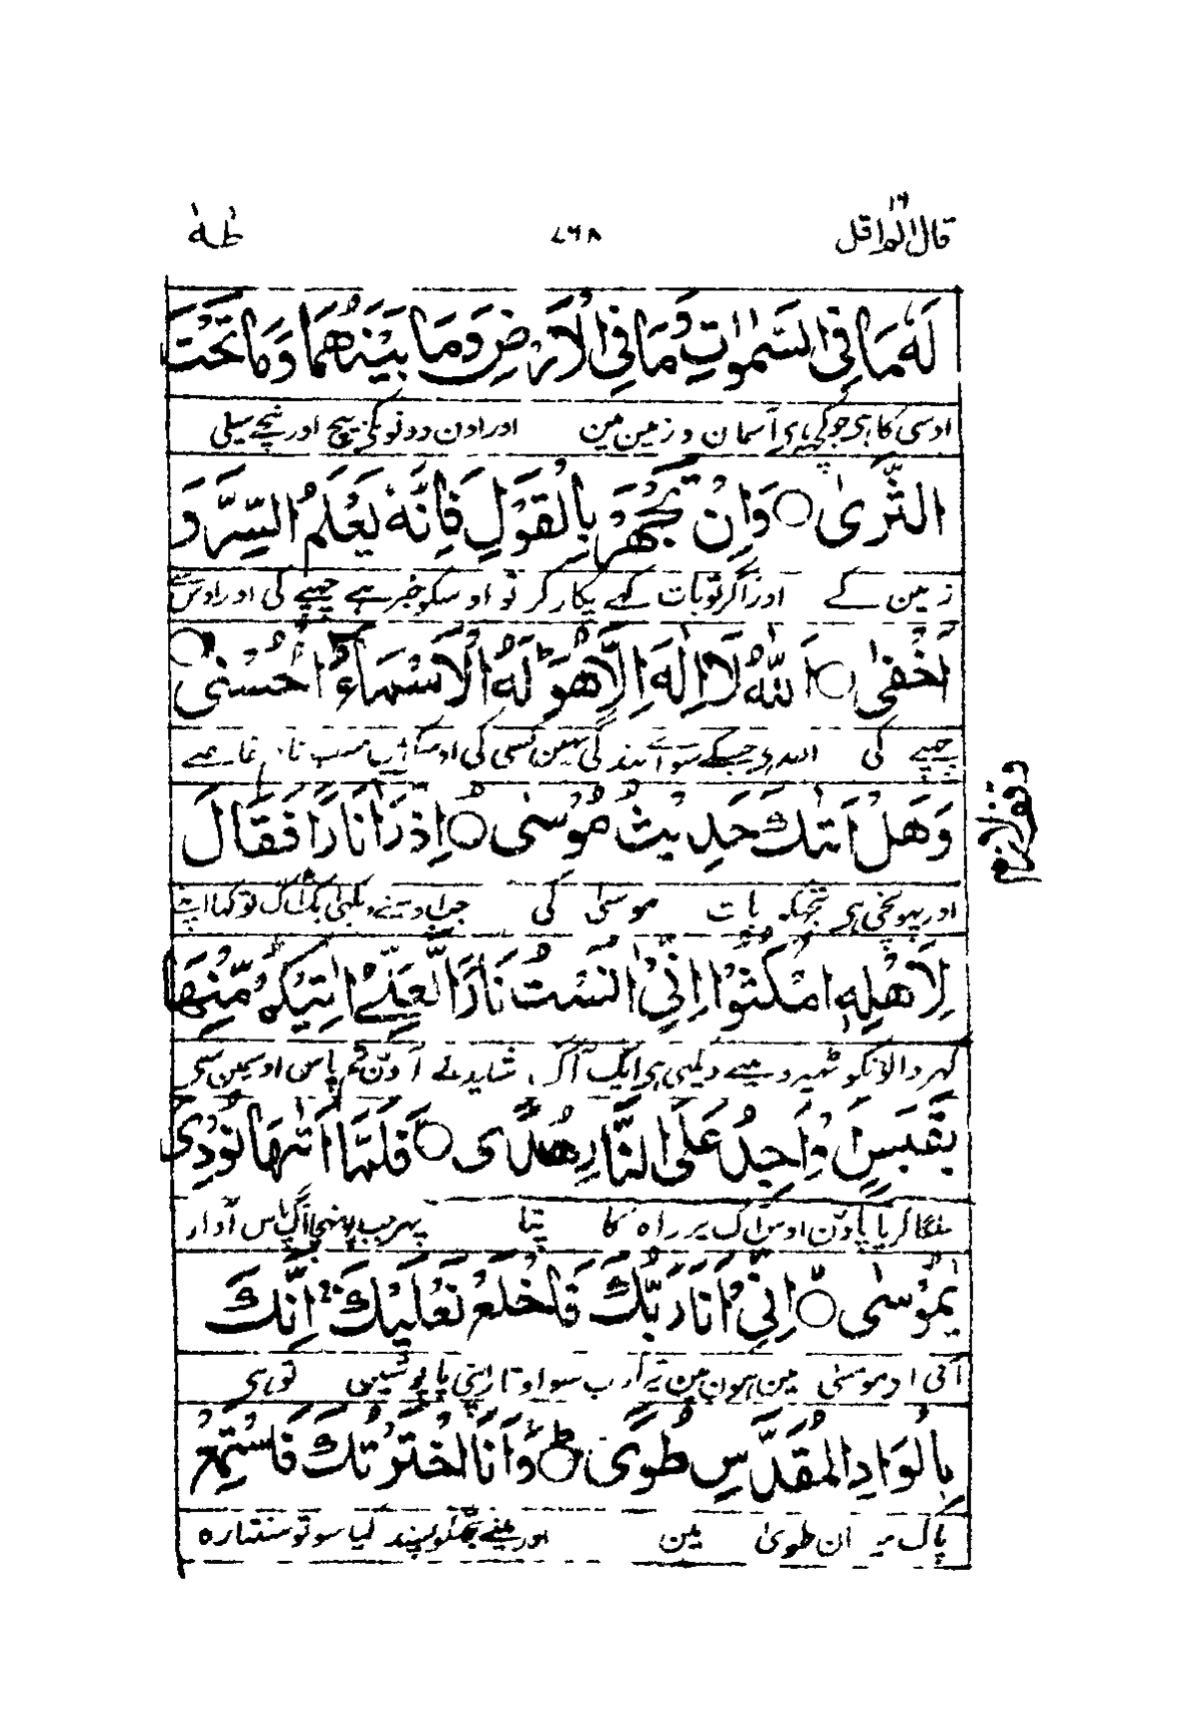 قال الم اقل ١٦ ٧٦٨ طٰهٰ
لَهٗ مَا فِی السَّمٰوٰتِ وَمَا فِی الْاَرْضِ وَمَا بَیْنَهُمَا وَمَا تَحْتَ
اوسی کا ہی جو کچھ ہی آسمان و زمین مین اور اون دونو کی بیچ اور نیچے سیلی
الثَّرٰی ○ وَاِنْ تَجْهَرْ بِالْقَوْلِ فَاِنَّهٗ یَعْلَمُ السِّرَّ وَ
زمین کے اور اگر تو بات کہے پکار کر تو اوسکو خبر ہے چھپے کی اور اوس سے
اَخْفٰی ○ اَللّٰهُ لَا اِلٰهَ اِلَّا هُوَ ؕ لَهُ الْاَسْمَآءُ الْحُسْنٰی ○
چھپے کی اللہ ہے جسکے سوائے بندگی نہین کسی کی اوسکے ہیں سب نام خاصے
وَهَلْ اَتٰىكَ حَدِیْثُ مُوْسٰی ○ اِذْ رَاٰ نَارًا فَقَالَ
وقف لازم
اور پہونچی ہی تجھکو بات موسیٰ کی جب اوسنے دیکھی ایک آگ تو کہا اپنے
لِاَهْلِهِ امْكُثُوْۤا اِنِّیْۤ اٰنَسْتُ نَارًا لَّعَلِّیْۤ اٰتِیْكُمْ مِّنْهَا
گہر والونکو ٹھیرو مینے دیکھی ہی ایک آگ شاید لے آؤن تم پاس اوسمین سی
بِقَبَسٍ اَوْ اَجِدُ عَلَی النَّارِ هُدًی ○ فَلَمَّاۤ اَتٰىهَا نُوْدِیَ
سلگا کر یا پاؤن اوس آگ پر راہ کا پتا پہر جب پہنچا آگ پاس آواز
یٰمُوْسٰی ○ اِنِّیْۤ اَنَا رَبُّكَ فَاخْلَعْ نَعْلَیْكَ ۚ اِنَّكَ
آئی او موسیٰ مین ہون مین تیرا رب سو اوتار اپنی پاپوشیں تو ہی
بِالْوَادِ الْمُقَدَّسِ طُوًی ○ وَاَنَا اخْتَرْتُكَ فَاسْتَمِعْ
پاک میدان طویٰ مین اور مینے تجھکو پسند کیا سو تو سنتا رہ